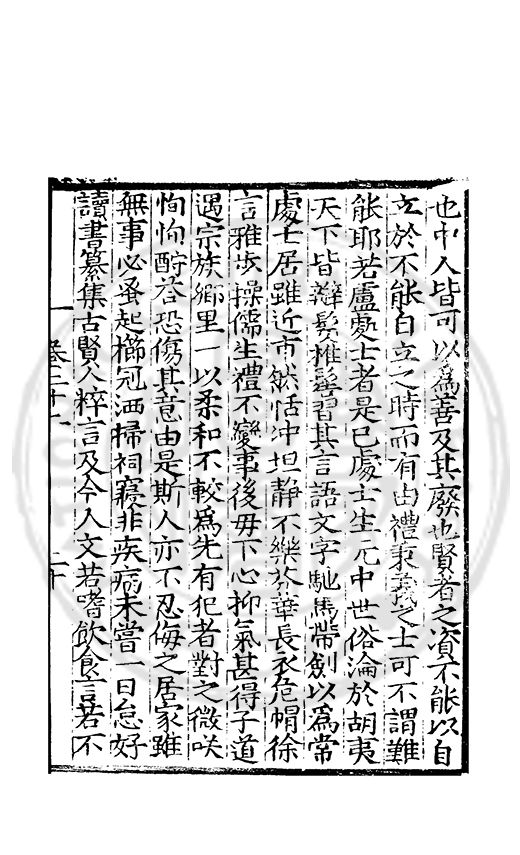 也中人皆可以為善及其廢也賢者之資不能以自
立於不能自立之時而有由禮秉義之士可不謂難
能耶若盧處士者是已處士生元中世俗淪於胡夷
天下皆辮髮椎髻習其言語文字馳馬帶劍以為常
處士居雖近市然恬冲坦靜不樂紛華長衣危帽徐
言雅步操儒生禮不變事後母下心抑氣甚得子道
遇宗族鄉里一以柔和不較為先有犯者對之微咲
恂恂酧荅恐傷其意由是斯人亦不忍侮之居家雖
無事必蚤起櫛冠洒掃祠寢非疾病未嘗一日怠好
讀書纂集古賢人粹言及今人文若嗜飲食言若不